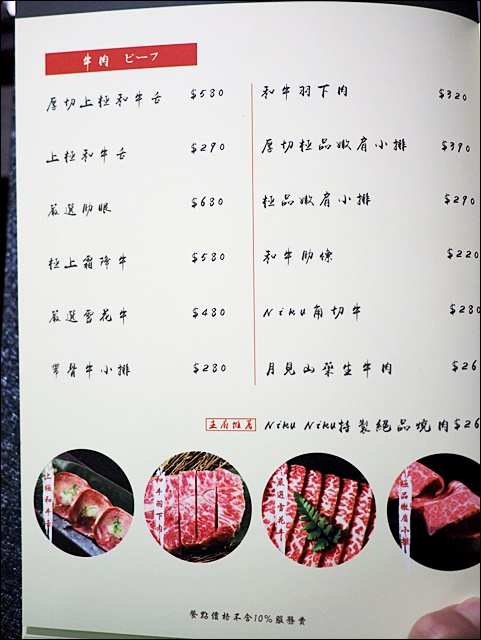 牛肉 ビーフ
厚切上極和牛舌 $530
上極和牛舌 $290
嚴選肋眼 $630
極上霜降牛 $530
嚴選雪花牛 $430
帶骨牛小排 $230
和牛羽下肉 $320
厚切極品嫩肩小排 $390
極品嫩肩小排 $290
和牛肋條 $220
Niku角切牛 $230
月見山藥生牛肉 $26
主廚推薦 Niku Niku特製絕品燒肉 $26
上極和牛舌
和牛羽下肉
嚴選雪花牛
極品嫩肩小排
餐點價格不含10%服務費